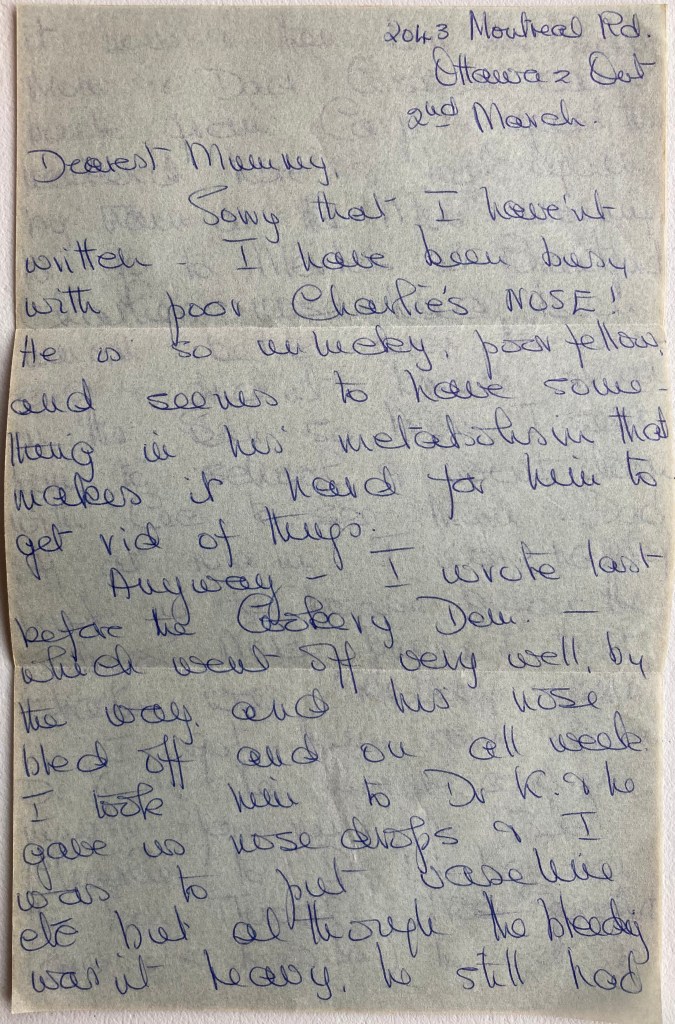 2043 Montreal Rd.
Ottawa 2 Ont
2nd March.
Dearest Mummy,
Sorry that I have'nt
written - I have been busy
with poor Charlie's NOSE!
He is so unlucky, poor fellow,
and seems to have some-
thing in his metabolism that
makes it hard for him to
get rid of things.
Anyway - I wrote last
before the Cookery Dem. -
which went off very well, by
the way, and his nose
bled off and on all week.
I took him to Dr K. & he
gave us nose drops & I
was to put vaseline
etc but although the bleeding
was'nt heavy, he still had